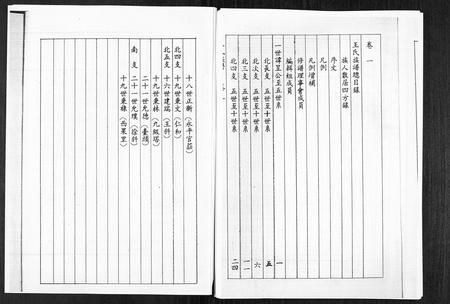 卷一
王氏族譜總目錄
族人散居四方錄
序文
凡例
凡例增補
修譜理事會成員
編輯組成員
一世諱呈公至五世系 一
北長支 五世至十世系 五
北次支 五世至十世系 六
北三支 五世至十世系 一一
北四支 五世至十世系 二四
十八世正衡(永平官莊)
北四支 十九世秉文(仁和)
北五支 十六世建瑞(王科)
十九世秉林(九級塔)
二十一世允德(臺頭)
南支 二十一世允璞(徐斜)
十九世秉禄(西果里)